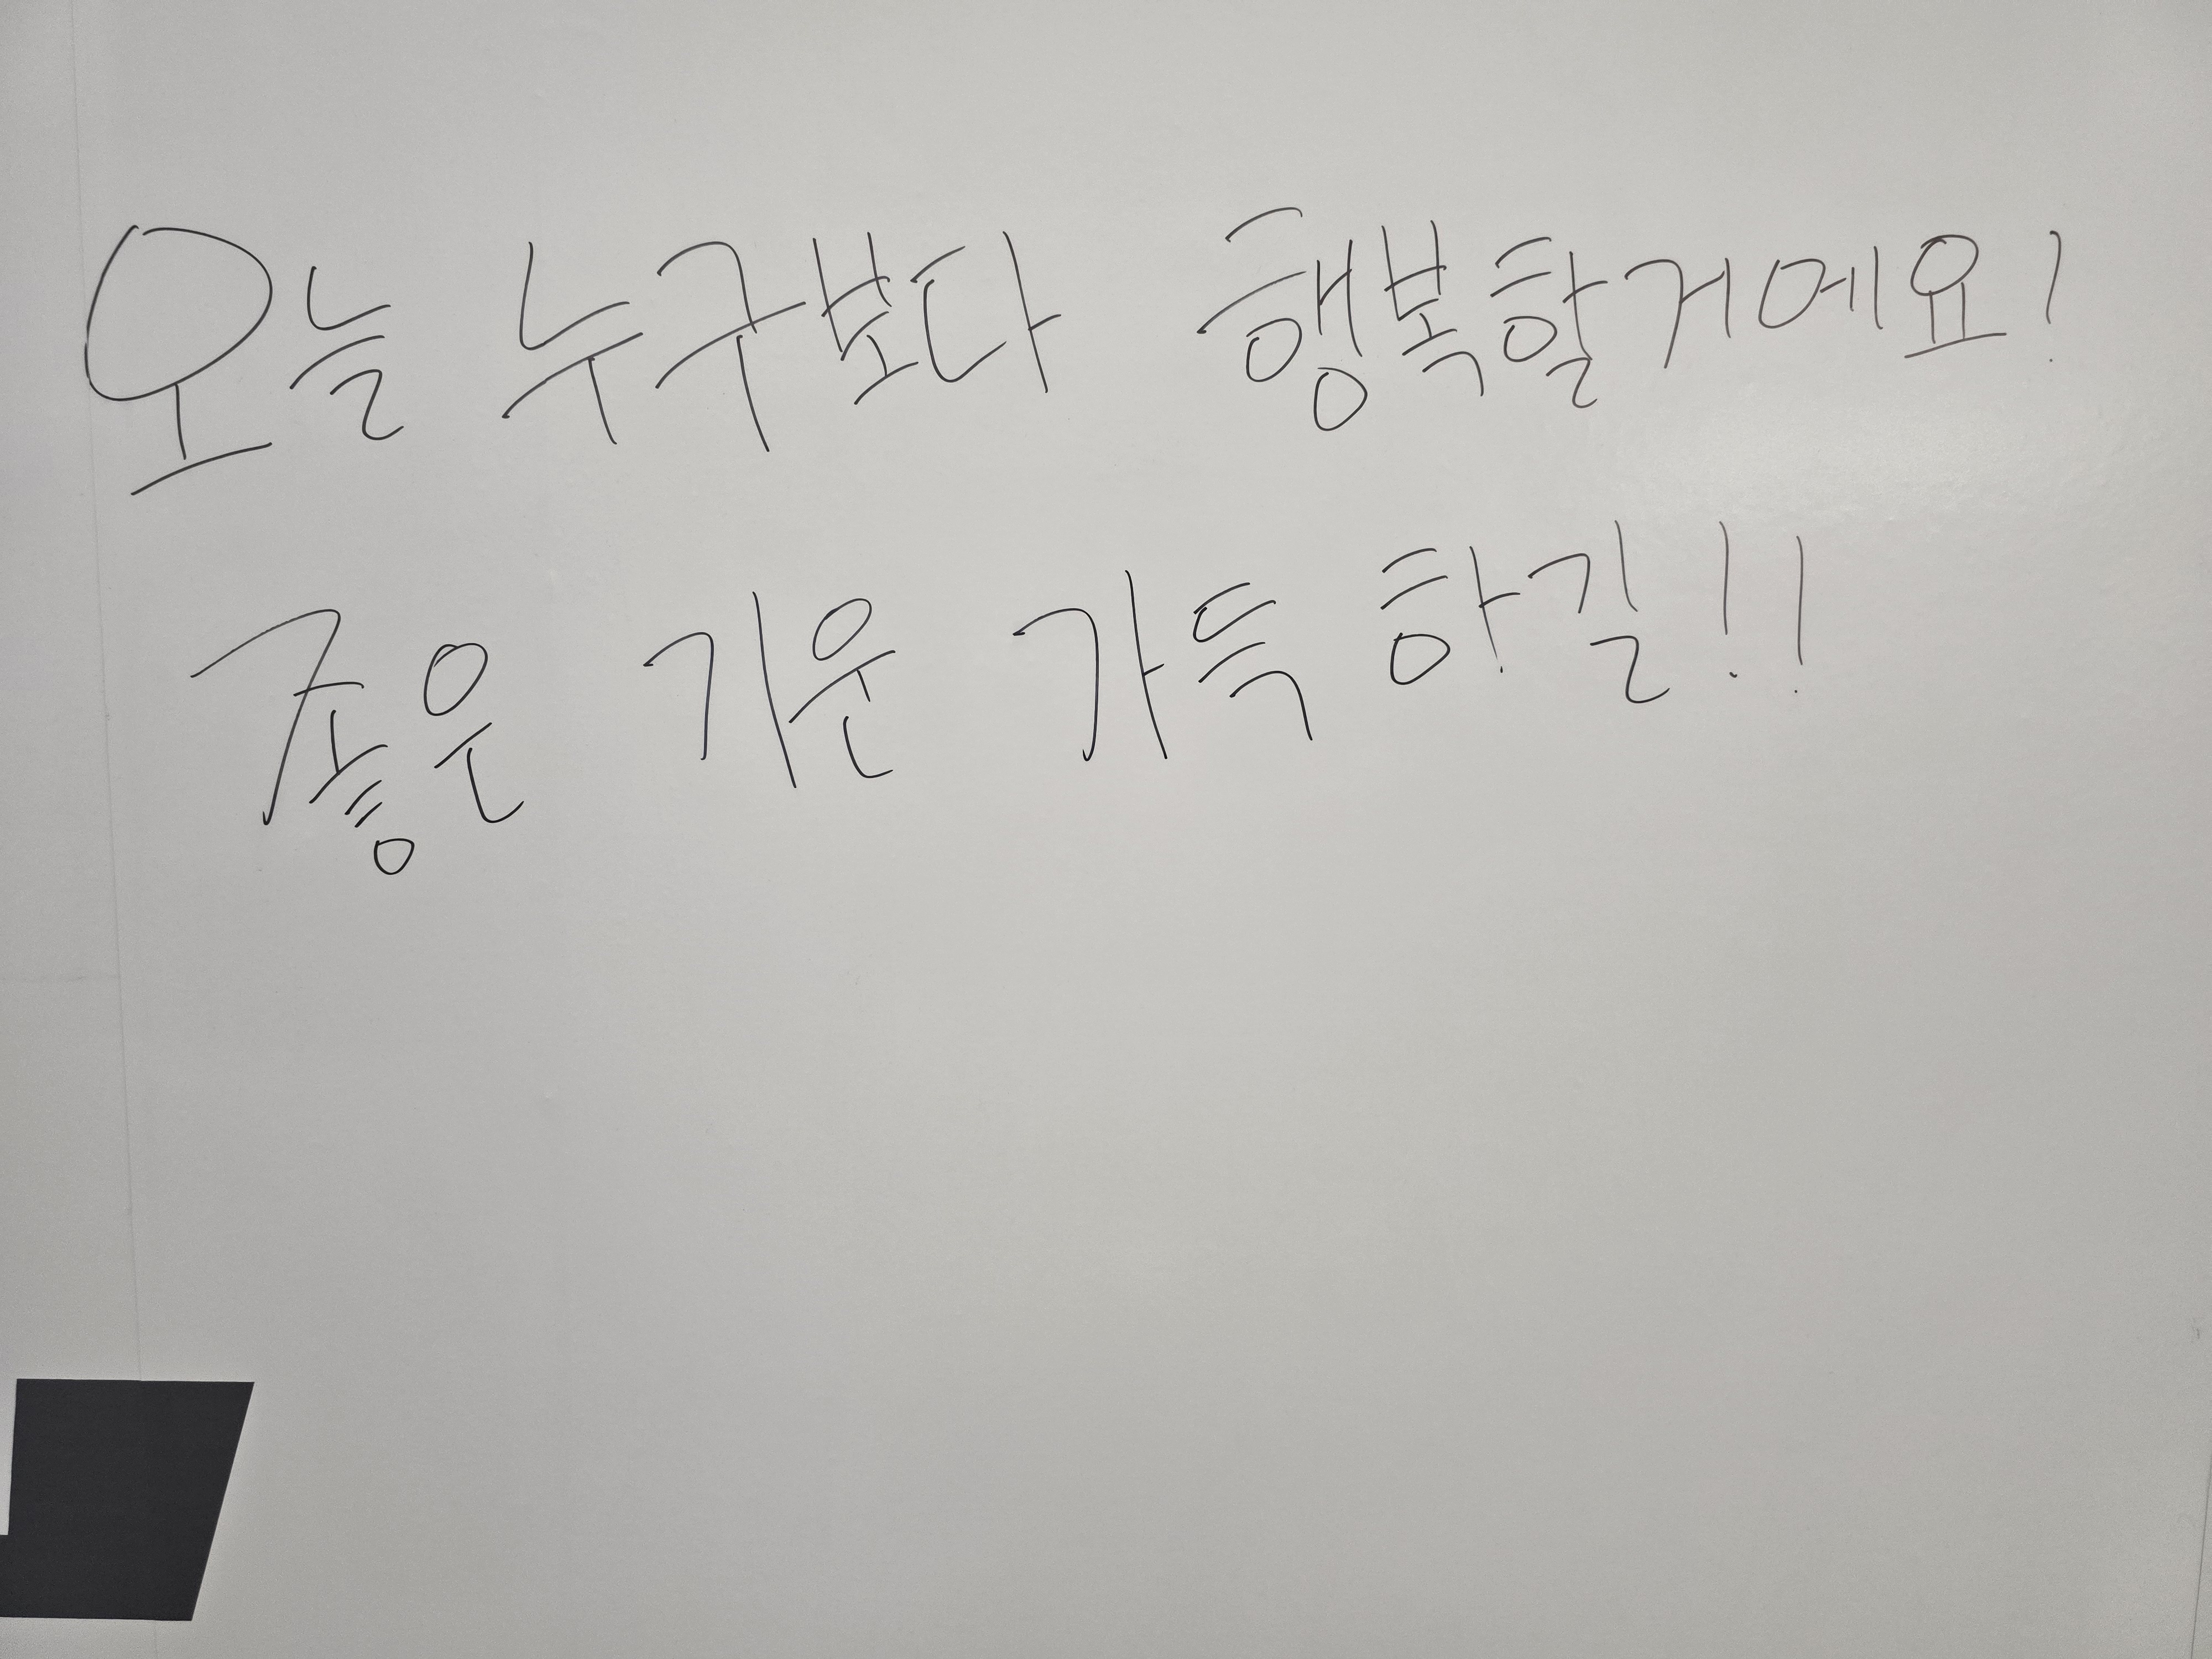 오늘 누구보다 행복할거에요!
좋은 기운 가득 하길!!